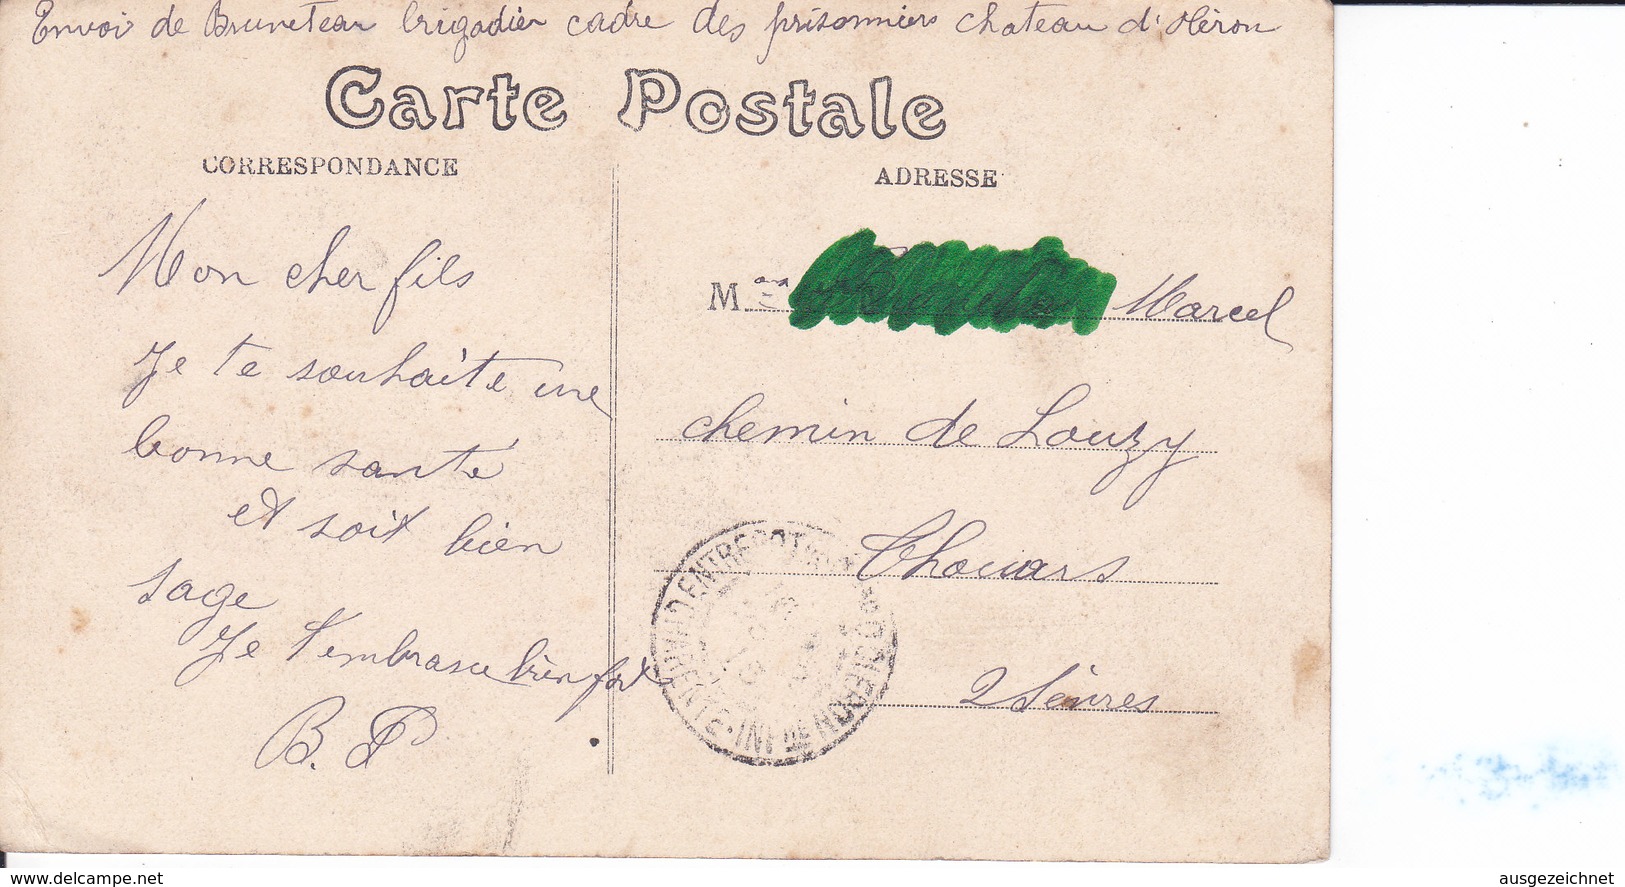 Envoi de Bruneteau brigadier cadre des prisonniers chateau d'Héron
Carte Postale
CORRESPONDANCE
ADRESSE
Mon cher fils
Je te souhaite une
bonne santé
et soit bien
sage
Je t'embrasse bien fort
B. P
M Marcel
chemin de Louzy
Thouars
2 Sèvres
www.delcampe.net
ausgezeichnet